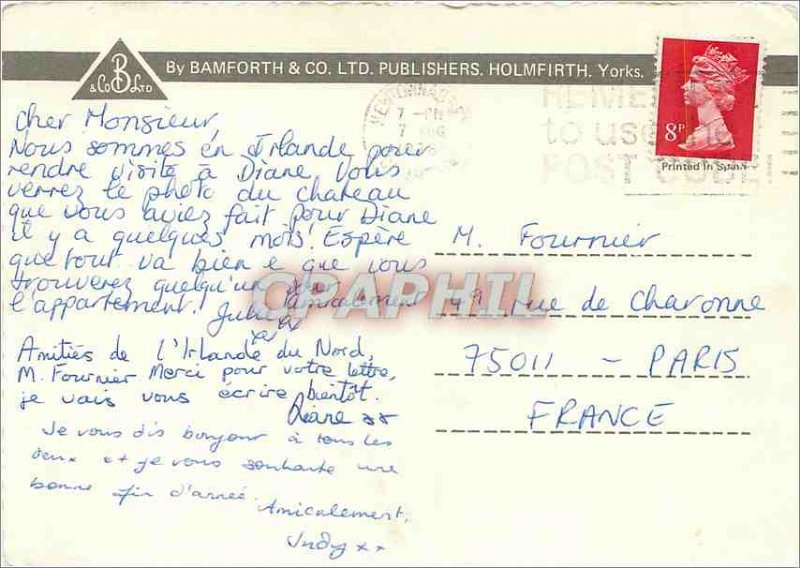 B
& Co LTD
By BAMFORTH & CO. LTD. PUBLISHERS. HOLMFIRTH, Yorks.
8P
Printed in Spain
to use
POST CODE
cher Monsieur,
Nous sommes en Irlande pour
rendre visite à Diane. Vous
verrez le photo du chateau
que vous aviez fait pour Diane
il y a quelques mois! Espère
que tout va bien e que vous
trouverez quelqu'un pour
l'appartement. Amicalement
Julie
Amitiés de l'Irlande du Nord,
M. Fournier Merci pour votre lettre,
je vais vous écrire bientôt.
Diane xx
Je vous dis bonjour à tous les
deux ++ je vous souhaite une
bonne fin d'année.
Amicalement,
Judy xx
M. Fournier
49 rue de Charonne
75011 - PARIS
FRANCE
CPAPHIL